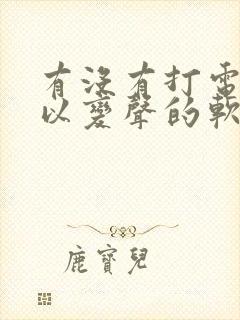 有沒有打電
以變聲的軟
鹿寶兒